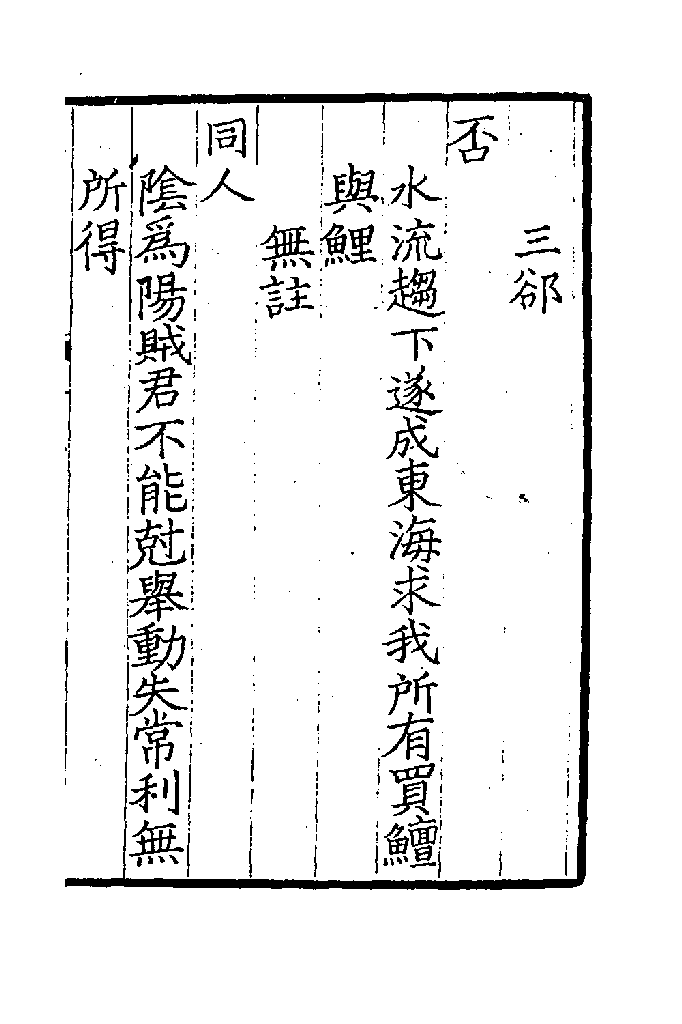 三郤
否
水流趨下遂成東海求我所有買鱣
與鯉
無註
同人
陰爲陽賊君不能尅舉動失常利無
所得